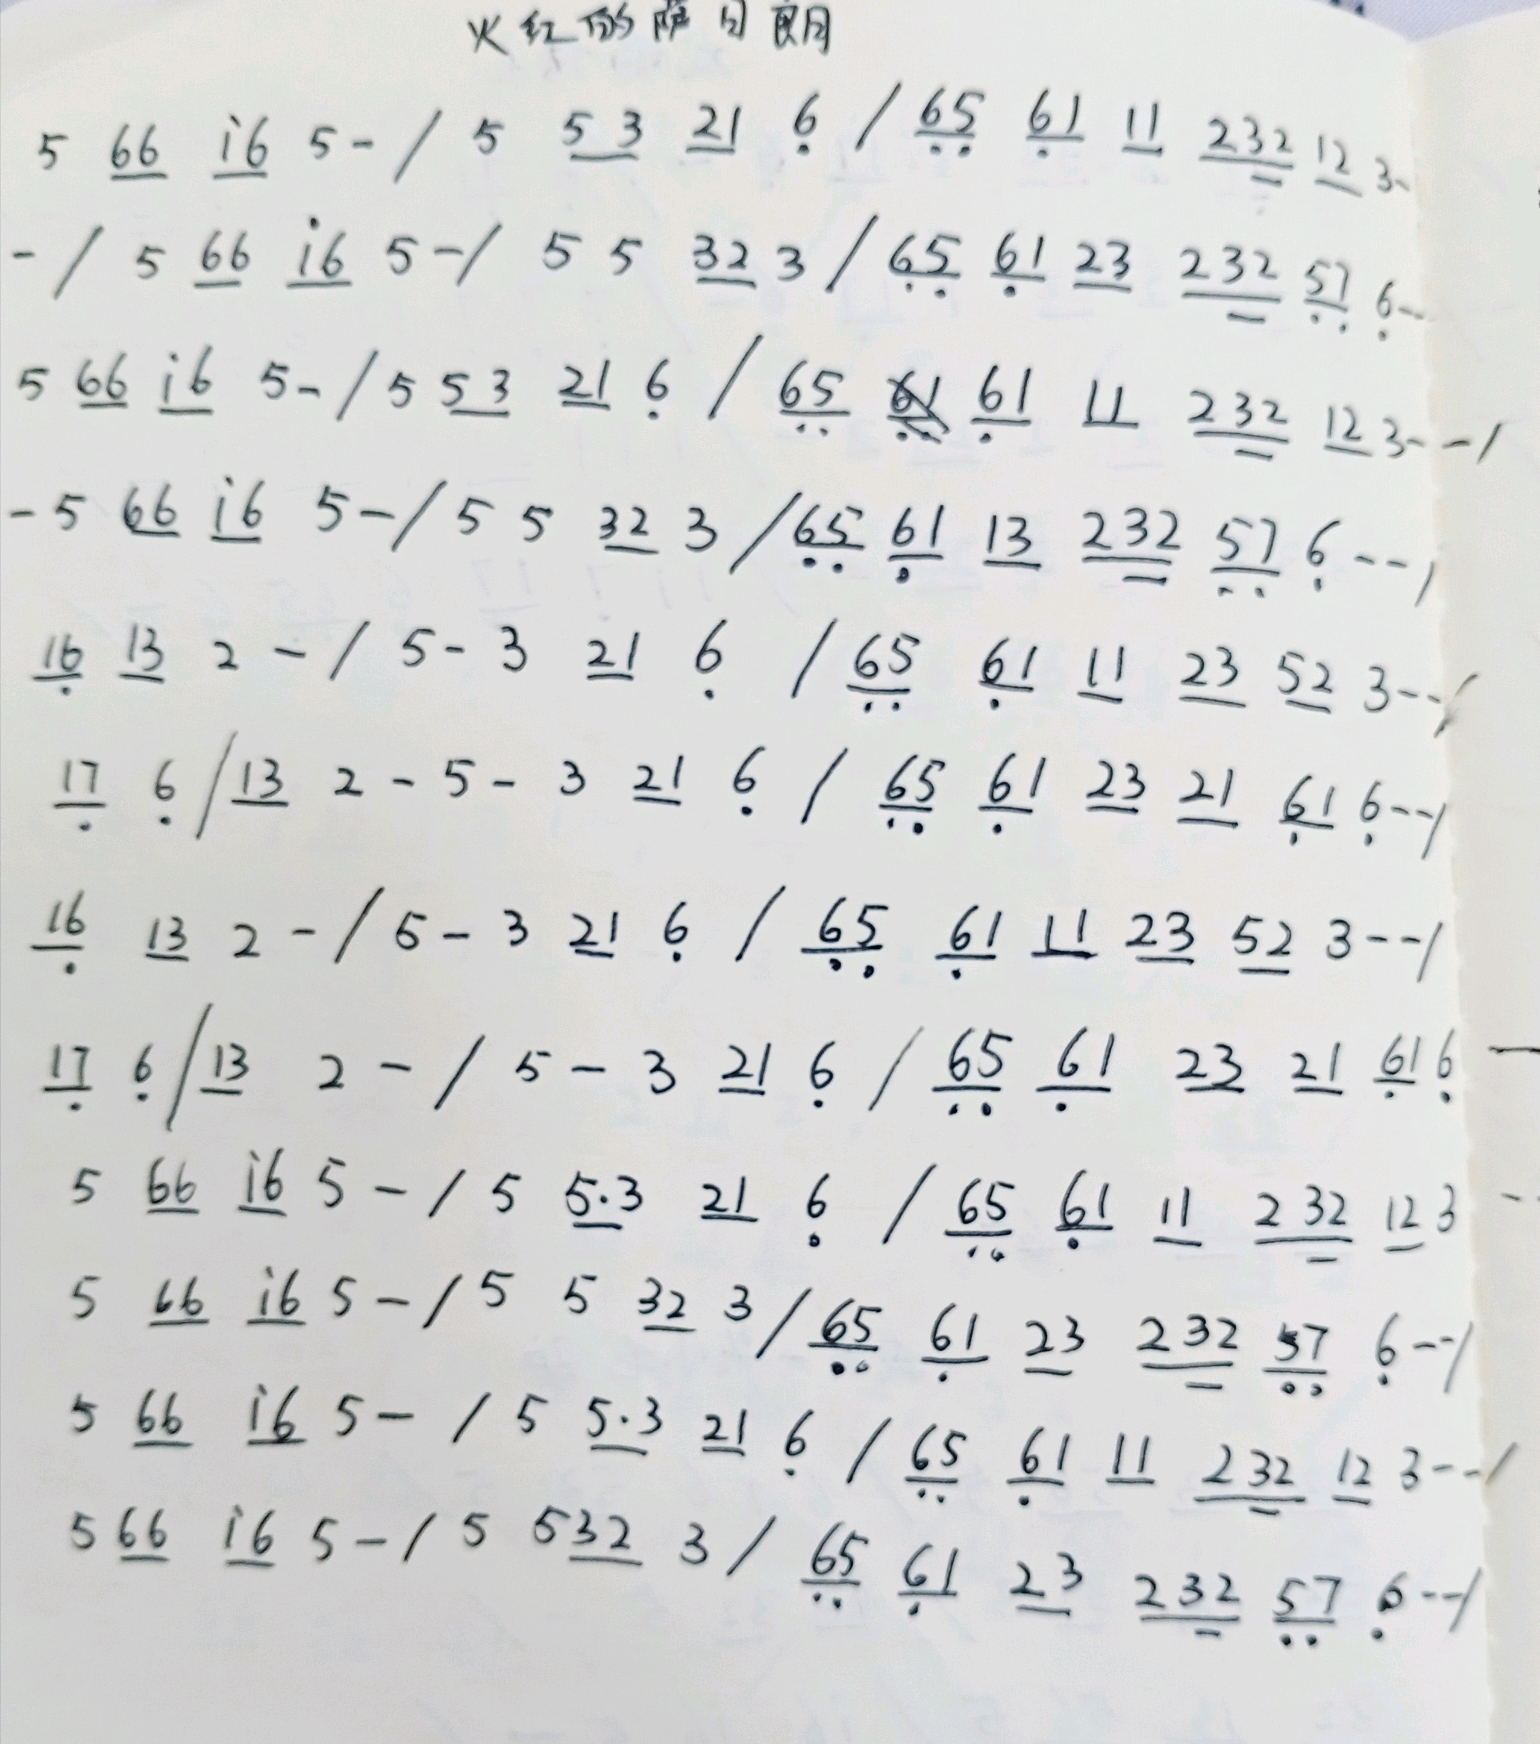 火红的萨日朗
5 66 i6 5- / 5 53 21 6̣ / 6̣5̣ 6̣1 11 232 12 3-
- / 5 66 i6 5-/ 5 5 32 3 / 6̣5̣ 6̣1 23 232 5̣7̣ 6̣--
5 66 i6 5- / 5 53 21 6̣ / 6̣5̣ 6̣1 11 232 12 3---/
-5 66 i6 5-/ 5 5 32 3 / 6̣5̣ 6̣1 13 232 5̣7̣ 6̣--/
16̣ 13 2 - / 5- 3 21 6̣ / 6̣5̣ 6̣1 11 23 52 3--/
17̣ 6̣ / 13 2 - 5 - 3 21 6̣ / 6̣5̣ 6̣1 23 21 6̣1 6̣--/
16̣ 13 2 - / 5 - 3 21 6̣ / 6̣5̣ 6̣1 11 23 52 3--/
17̣ 6̣ / 13 2 - / 5 - 3 21 6̣ / 6̣5̣ 6̣1 23 21 6̣1 6̣ —
5 66 i6 5 - / 5 5.3 21 6̣ / 6̣5̣ 6̣1 11 232 12 3 --
5 66 i6 5 - / 5 5 32 3 / 6̣5̣ 6̣1 23 232 5̣7̣ 6̣--/
5 66 i6 5 - / 5 5.3 21 6̣ / 6̣5̣ 6̣1 11 232 12 3---/
5 66 i6 5 - / 5 532 3 / 6̣5̣ 6̣1 23 232 5̣7̣ 6̣--/